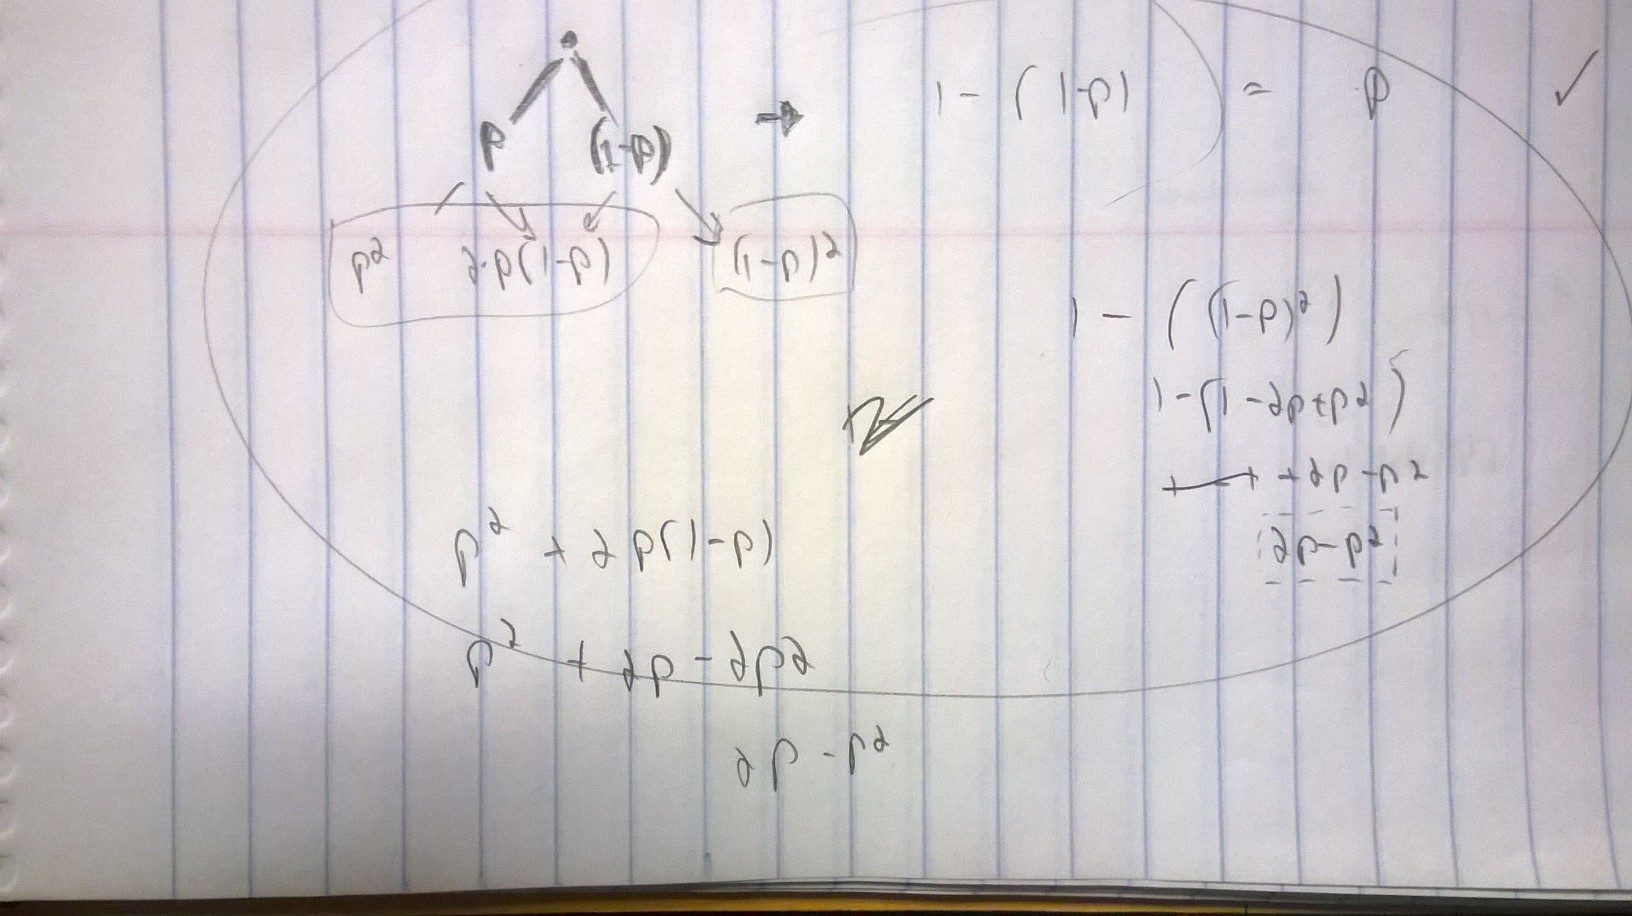 p (1-p) → 1 - (1-p) = p ✓
p² 2·p(1-p) (1-p)²
1 - ((1-p)²)
1 - (1 - 2p + p²)
1 - 1 + 2p - p²
2p - p²
p² + 2p(1-p)
p² + 2p - 2p²
2p - p²